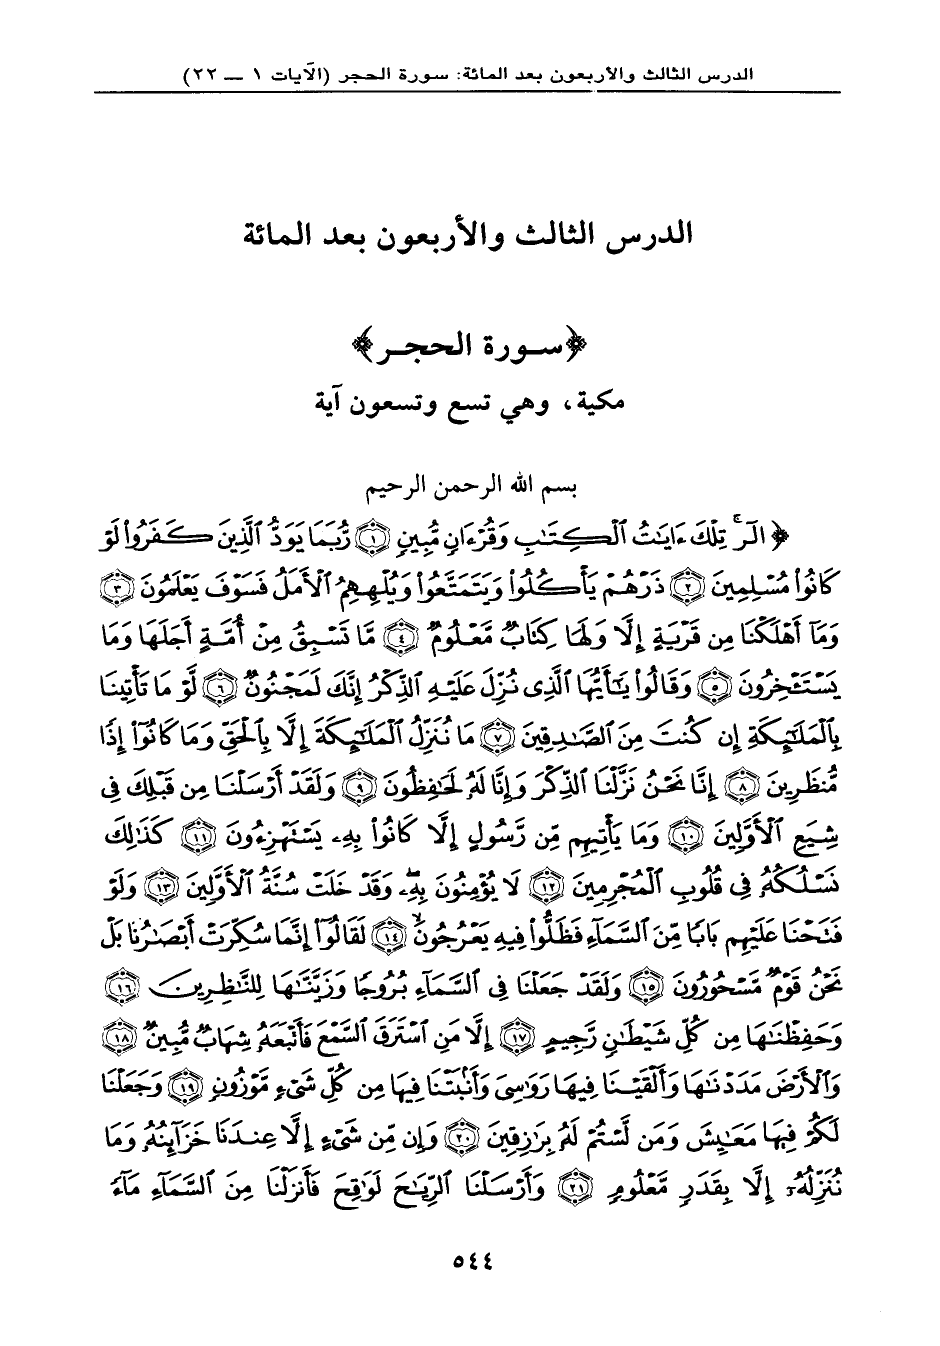 الدرس الثالث والأربعون بعد المائة: سورة الحجر (الآيات ١ ـ ٢٢)
الدرس الثالث والأربعون بعد المائة
﴿سورة الحجر﴾
مكية، وهي تسع وتسعون آية
بسم الله الرحمن الرحيم
﴿الٓرۚ تِلۡكَ ءَايَٰتُ ٱلۡكِتَٰبِ وَقُرۡءَانٖ مُّبِينٖ ١ رُّبَمَا يَوَدُّ ٱلَّذِينَ كَفَرُواْ لَوۡ
كَانُواْ مُسۡلِمِينَ ٢ ذَرۡهُمۡ يَأۡكُلُواْ وَيَتَمَتَّعُواْ وَيُلۡهِهِمُ ٱلۡأَمَلُ فَسَوۡفَ يَعۡلَمُونَ ٣
وَمَآ أَهۡلَكۡنَا مِن قَرۡيَةٍ إِلَّا وَلَهَا كِتَابٞ مَّعۡلُومٞ ٤ مَّا تَسۡبِقُ مِنۡ أُمَّةٍ أَجَلَهَا وَمَا
يَسۡتَـٔۡخِرُونَ ٥ وَقَالُواْ يَٰٓأَيُّهَا ٱلَّذِي نُزِّلَ عَلَيۡهِ ٱلذِّكۡرُ إِنَّكَ لَمَجۡنُونٞ ٦ لَّوۡ مَا تَأۡتِينَا
بِٱلۡمَلَٰٓئِكَةِ إِن كُنتَ مِنَ ٱلصَّٰدِقِينَ ٧ مَا نُنَزِّلُ ٱلۡمَلَٰٓئِكَةَ إِلَّا بِٱلۡحَقِّ وَمَا كَانُوٓاْ إِذٗا
مُّنظَرِينَ ٨ إِنَّا نَحۡنُ نَزَّلۡنَا ٱلذِّكۡرَ وَإِنَّا لَهُۥ لَحَٰفِظُونَ ٩ وَلَقَدۡ أَرۡسَلۡنَا مِن قَبۡلِكَ فِي
شِيَعِ ٱلۡأَوَّلِينَ ١٠ وَمَا يَأۡتِيهِم مِّن رَّسُولٍ إِلَّا كَانُواْ بِهِۦ يَسۡتَهۡزِءُونَ ١١ كَذَٰلِكَ
نَسۡلُكُهُۥ فِي قُلُوبِ ٱلۡمُجۡرِمِينَ ١٢ لَا يُؤۡمِنُونَ بِهِۦ وَقَدۡ خَلَتۡ سُنَّةُ ٱلۡأَوَّلِينَ ١٣ وَلَوۡ
فَتَحۡنَا عَلَيۡهِم بَابٗا مِّنَ ٱلسَّمَآءِ فَظَلُّواْ فِيهِ يَعۡرُجُونَ ١٤ لَقَالُوٓاْ إِنَّمَا سُكِّرَتۡ أَبۡصَٰرُنَا بَلۡ
نَحۡنُ قَوۡمٞ مَّسۡحُورُونَ ١٥ وَلَقَدۡ جَعَلۡنَا فِي ٱلسَّمَآءِ بُرُوجٗا وَزَيَّنَّٰهَا لِلنَّٰظِرِينَ ١٦
وَحَفِظۡنَٰهَا مِن كُلِّ شَيۡطَٰنٖ رَّجِيمٍ ١٧ إِلَّا مَنِ ٱسۡتَرَقَ ٱلسَّمۡعَ فَأَتۡبَعَهُۥ شِهَابٞ مُّبِينٞ ١٨
وَٱلۡأَرۡضَ مَدَدۡنَٰهَا وَأَلۡقَيۡنَا فِيهَا رَوَٰسِيَ وَأَنۢبَتۡنَا فِيهَا مِن كُلِّ شَيۡءٖ مَّوۡزُونٖ ١٩ وَجَعَلۡنَا
لَكُمۡ فِيهَا مَعَٰيِشَ وَمَن لَّسۡتُمۡ لَهُۥ بِرَٰزِقِينَ ٢٠ وَإِن مِّن شَيۡءٍ إِلَّا عِندَنَا خَزَآئِنُهُۥ وَمَا
نُنَزِّلُهُۥٓ إِلَّا بِقَدَرٖ مَّعۡلُومٖ ٢١ وَأَرۡسَلۡنَا ٱلرِّيَٰحَ لَوَٰقِحَ فَأَنزَلۡنَا مِنَ ٱلسَّمَآءِ مَآءٗ
٥٤٤